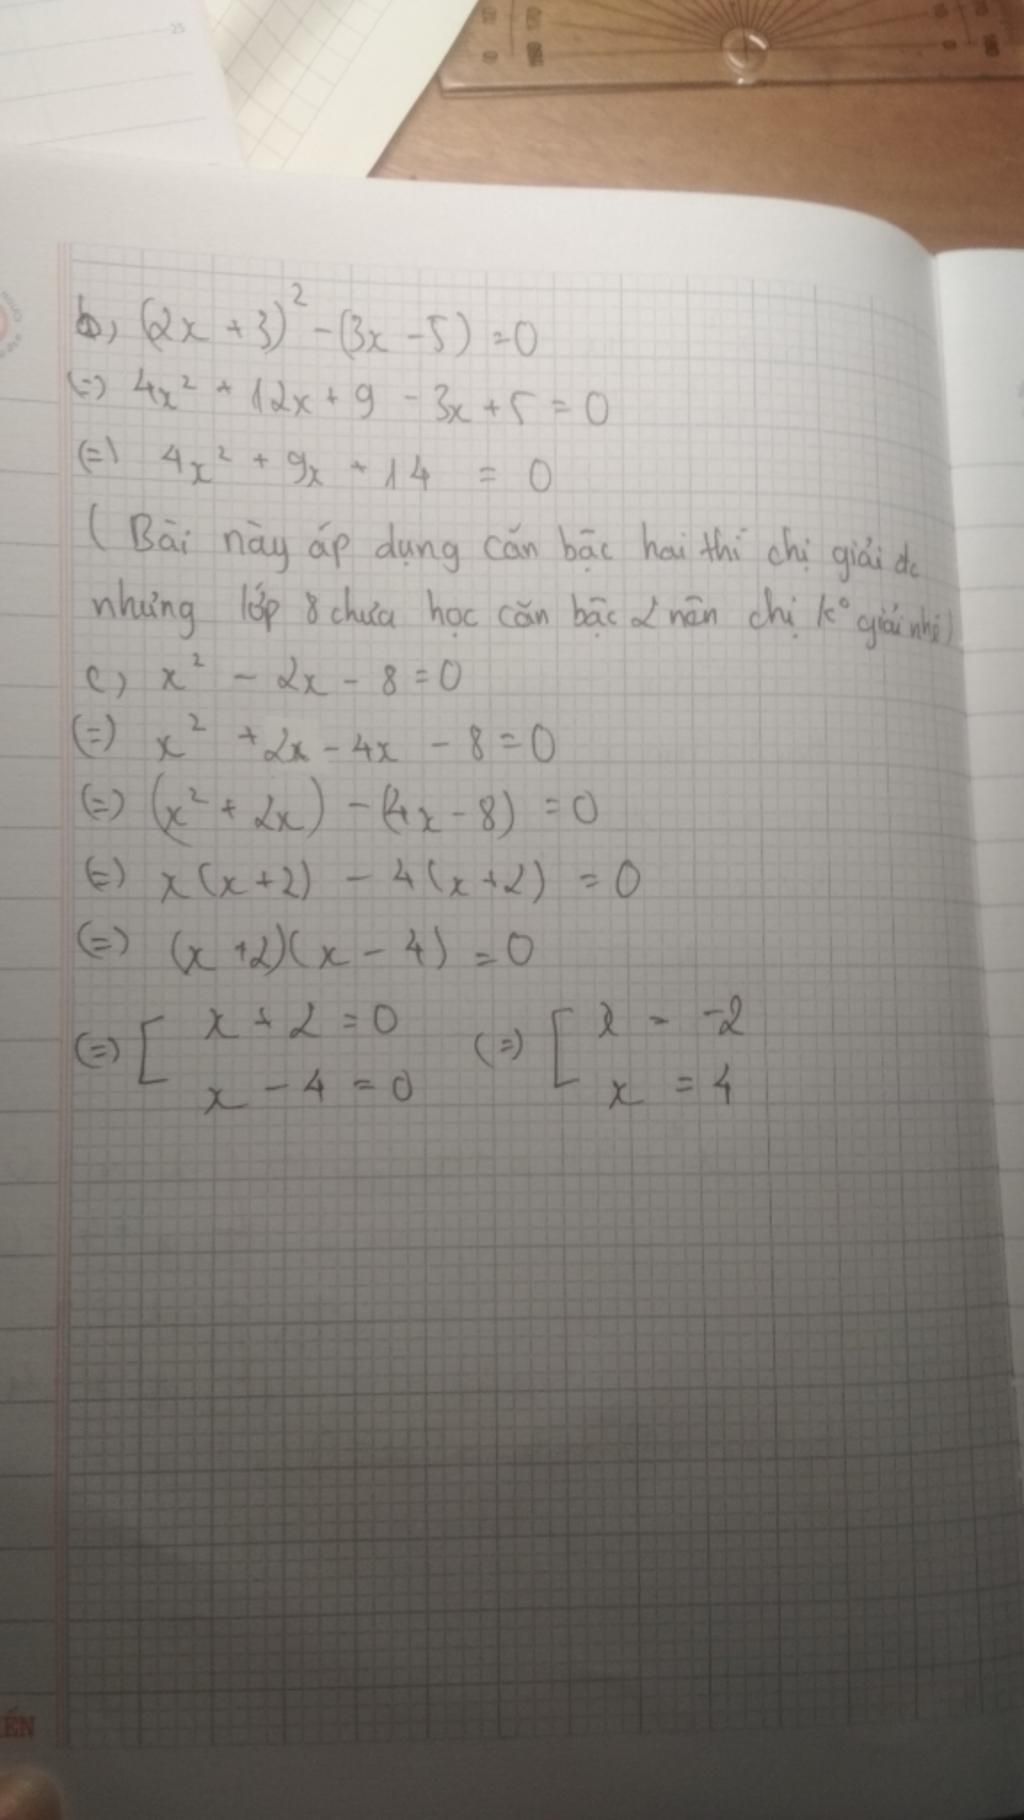 25
b, (2x + 3)² - (3x - 5) = 0
(=) 4x² + 12x + 9 - 3x + 5 = 0
(=) 4x² + 9x + 14 = 0
( Bài này áp dụng căn bậc hai thì chị giải dc
nhưng lớp 8 chưa học căn bậc 2 nên chị k° giải nhé)
c, x² - 2x - 8 = 0
(=) x² + 2x - 4x - 8 = 0
(=) (x² + 2x) - (4x - 8) = 0
(=) x(x+2) - 4(x+2) = 0
(=) (x+2)(x - 4) = 0
(=) [ x + 2 = 0 (=) [ x = -2
x - 4 = 0 x = 4
ẾN